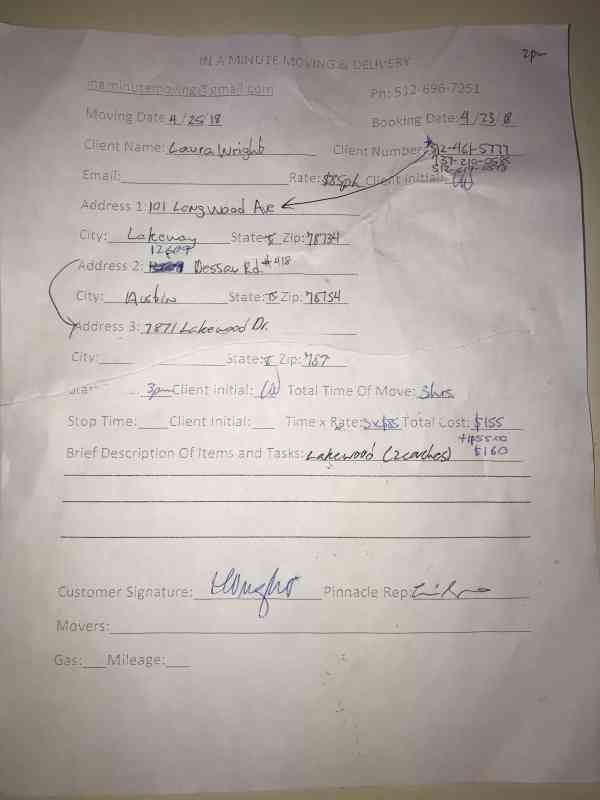 2pm
IN A MINUTE MOVING & DELIVERY
inaminutemoving@gmail.com Ph: 512-696-7251
Moving Date: 4/25/18 Booking Date: 4/23/18
Client Name: Laura Wright Client Number: 512-461-5777
737-210-0585
Email: Rate: $85ph Client Initial:
Address 1: 101 Longwood Ave
City: Lakeway State: Tx Zip: 78734
12609
Address 2: Dessau Rd. #418
City: Austin State: Tx Zip: 78754
Address 3: 7871 Lakewood Dr.
City: State: Tx Zip: 787
Start 3pm Client Initial: LW Total Time Of Move: 3hrs
Stop Time: Client Initial: Time x Rate: 3x$85 Total Cost: $155
Brief Description Of Items and Tasks: Lakewood (2 couches) $160
Customer Signature: Pinnacle Rep:
Movers:
Gas: Mileage: